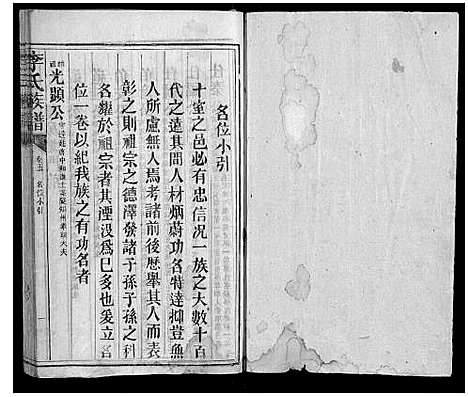 名位小引
十室之邑必有忠信况一族之大數十百
代之遠其間人材烟蔚功名特達抑豈無
人所慮無人焉考諸前後歷舉其人而表
彰之則祖宗之德澤發諸子孫子孫之科
名耀於祖宗者其湮没爲已多也爰立名
位一卷以紀我族之有功名者
光顯公
李氏族譜
卷五 名位小引